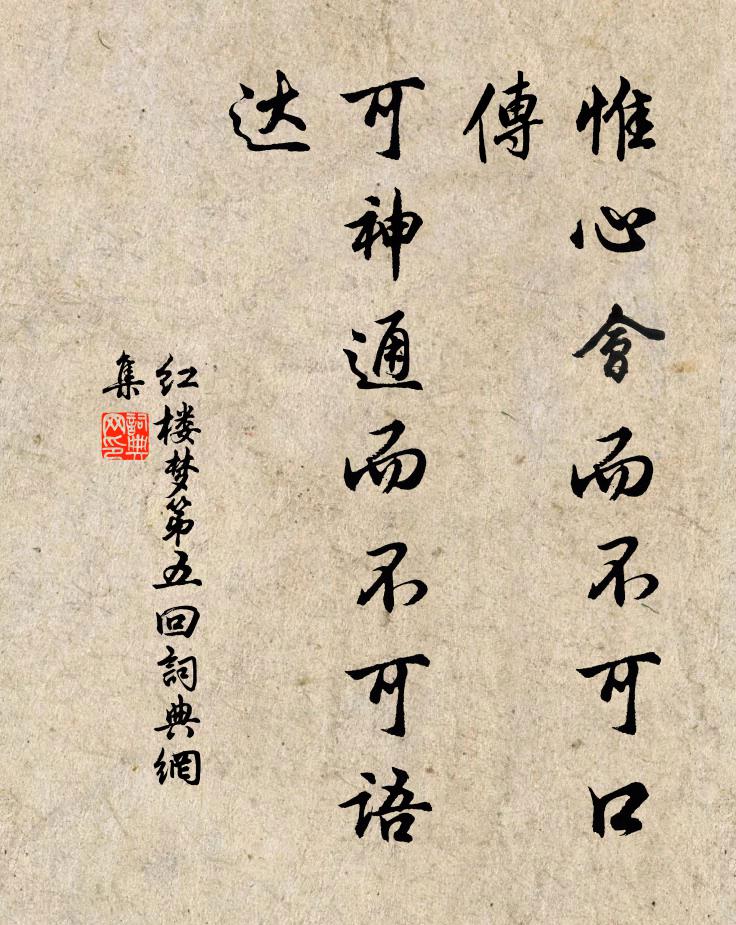 惟心會而不可口
傳
可神通而不可语
达
红楼梦第五回詞典網
集
詞典
网印